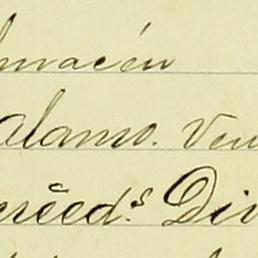 lmacén
alamo. Ven
creed.s Div